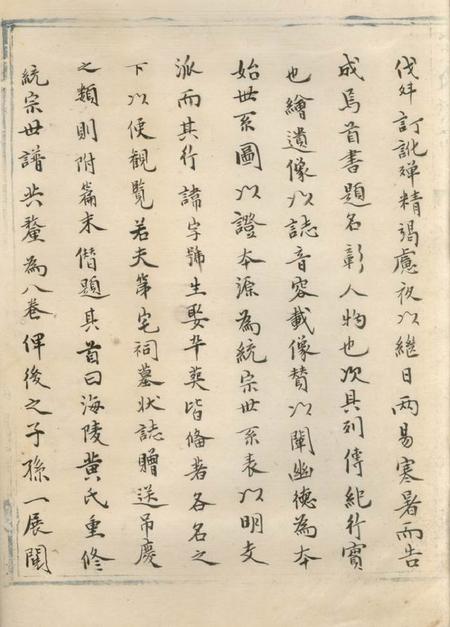 伐舛訂訛殫精竭慮夜以繼日兩易寒暑而告
成焉首書題名彰人物也次具列傳紀行實
也繪遺像以誌音容載像賛以闡幽德為本
始世系圖以證本源為統宗世系表以明支
派而其行諱字號生娶卒葵皆偹著各名之
下以便觀覧若夫第宅祠墓状誌贈送吊慶
之類則附篇末僭題其首曰海陵黄氏重修
統宗世譜共釐為八巻俾後之子孫一展閱